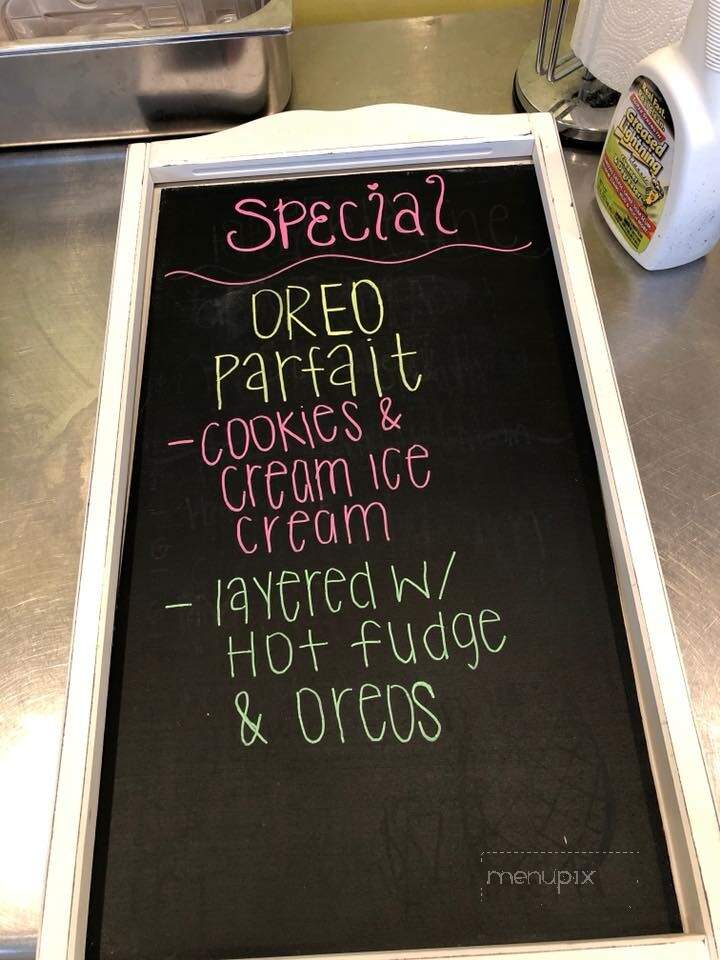 Special
OREO
Parfait
- cookies &
cream ice
cream
- layered w/
Hot fudge
& oreos
Greased
Lightning
menupix